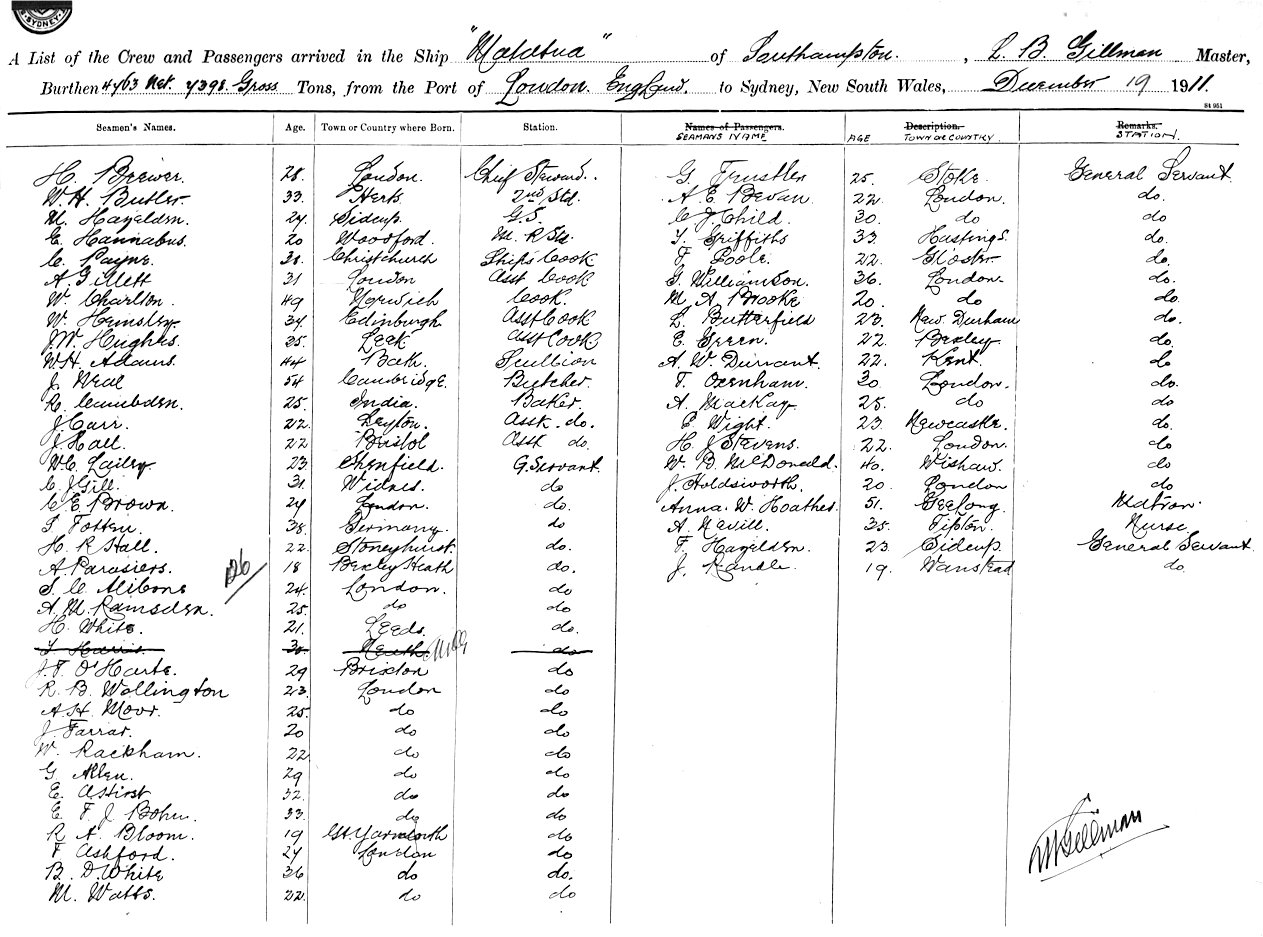 SYDNEY
A List of the Crew and Passengers arrived in the Ship "Matatua" of Southampton. , L. B. Gillman Master,
Burthen 4763 Net. 7398. Gross Tons, from the Port of London. England. to Sydney, New South Wales, December 19 1911.
St 951
Seamen's Names. Age. Town or Country where Born. Station. Names of Passengers. SEAMANS NAME AGE Description. TOWN OR COUNTRY Remarks. STATION.
H. Brewer. 28. London. Chief Steward. G Trustler 25. Stoke. General Servant.
W. H. Butler. 33. Herts. 2nd Std. A. E. Bevan. 22. London. do.
M. Hazelden. 24. Sidcup. G.S. C. J. Child. 30. do do
E. Hannabus. 20 Woodford. M. R Std. T. Griffiths 33. Hastings. do.
C. Payne. 38. Christchurch Ship's Cook F. Poole. 22. Gloster do.
A. Gillett 31 London Asst Cook G. Williamson. 36. London. do.
W. Charlton. 49 Norwich Cook. M. A. Brooke 20. do do
W. Hemsley. 34. Edinburgh Asst Cook L. Butterfield 23. New. Durham do.
J. W. Hughes. 25. Leek Asst Cook E. Green. 22. Bexley do.
W. H. Adams. 44 Bath. Scullion A. W. Durrant. 22. Kent. do
J. Weal 54 Cambridge. Butcher. T. Oxenham. 30 London. do.
R. Cambden. 25. India. Baker. A. Mackay. 25. do do.
J Carr. 22 Leyton. Asst. do. E. Wight. 23. Newcastle. do.
J Hall. 22 Bristol Asst do. H. J Stevens. 22. London. do
W. C. Lailey 23 Shenfield. G. Servant. W. B. McDonald. 40. Wishaw. do
C. J Gill. 31. Widnes. do J. Holdsworth. 20. London do
C. E. Brown. 24 London. do. Anna. W. Hoathes. 51. Geelong. Matron.
38. Germany. do A. Nevill. 35. Tipton. Nurse
H. R Hall. 22. Stoneyhurst. do. F. Hazelden. 23. Sidcup. General Servant.
A. 18 Bexley Heath do. J. Randle. 19. Wanstead do.
126
S. C. 24. London. do
A. M. Ramsden. 25. do do
H. White. 21. Leeds. do.
T Harris. 30. do
J. F. O'Harte. 29 Brixton do
R. B. Wollington 23. London do
A. H. Moor. 25. do do
J Farrar. 20 do do
W. Rackham. 22 do do
G. Allen. 29 do do
E. 32. do do
E. F. J Bohn. 33. do do
R. A. Bloom. 19 Gt. Yarmouth do
F Ashford. 24 London do
B. D. White 36 do do.
M. Watts. 22. do do
Gillman